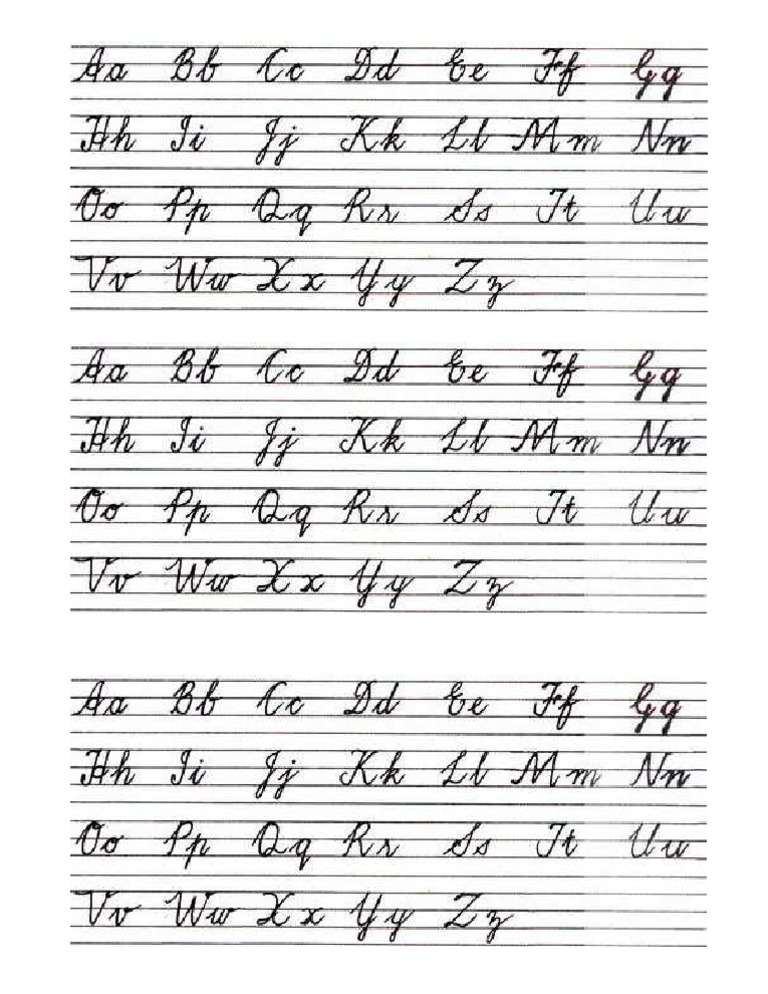 Aa Bb Cc Dd Ee Ff Gg
Hh Ii Jj Kk Ll Mm Nn
Oo Pp Qq Rr Ss Tt Uu
Vv Ww Xx Yy Zz
Aa Bb Cc Dd Ee Ff Gg
Hh Ii Jj Kk Ll Mm Nn
Oo Pp Qq Rr Ss Tt Uu
Vv Ww Xx Yy Zz
Aa Bb Cc Dd Ee Ff Gg
Hh Ii Jj Kk Ll Mm Nn
Oo Pp Qq Rr Ss Tt Uu
Vv Ww Xx Yy Zz